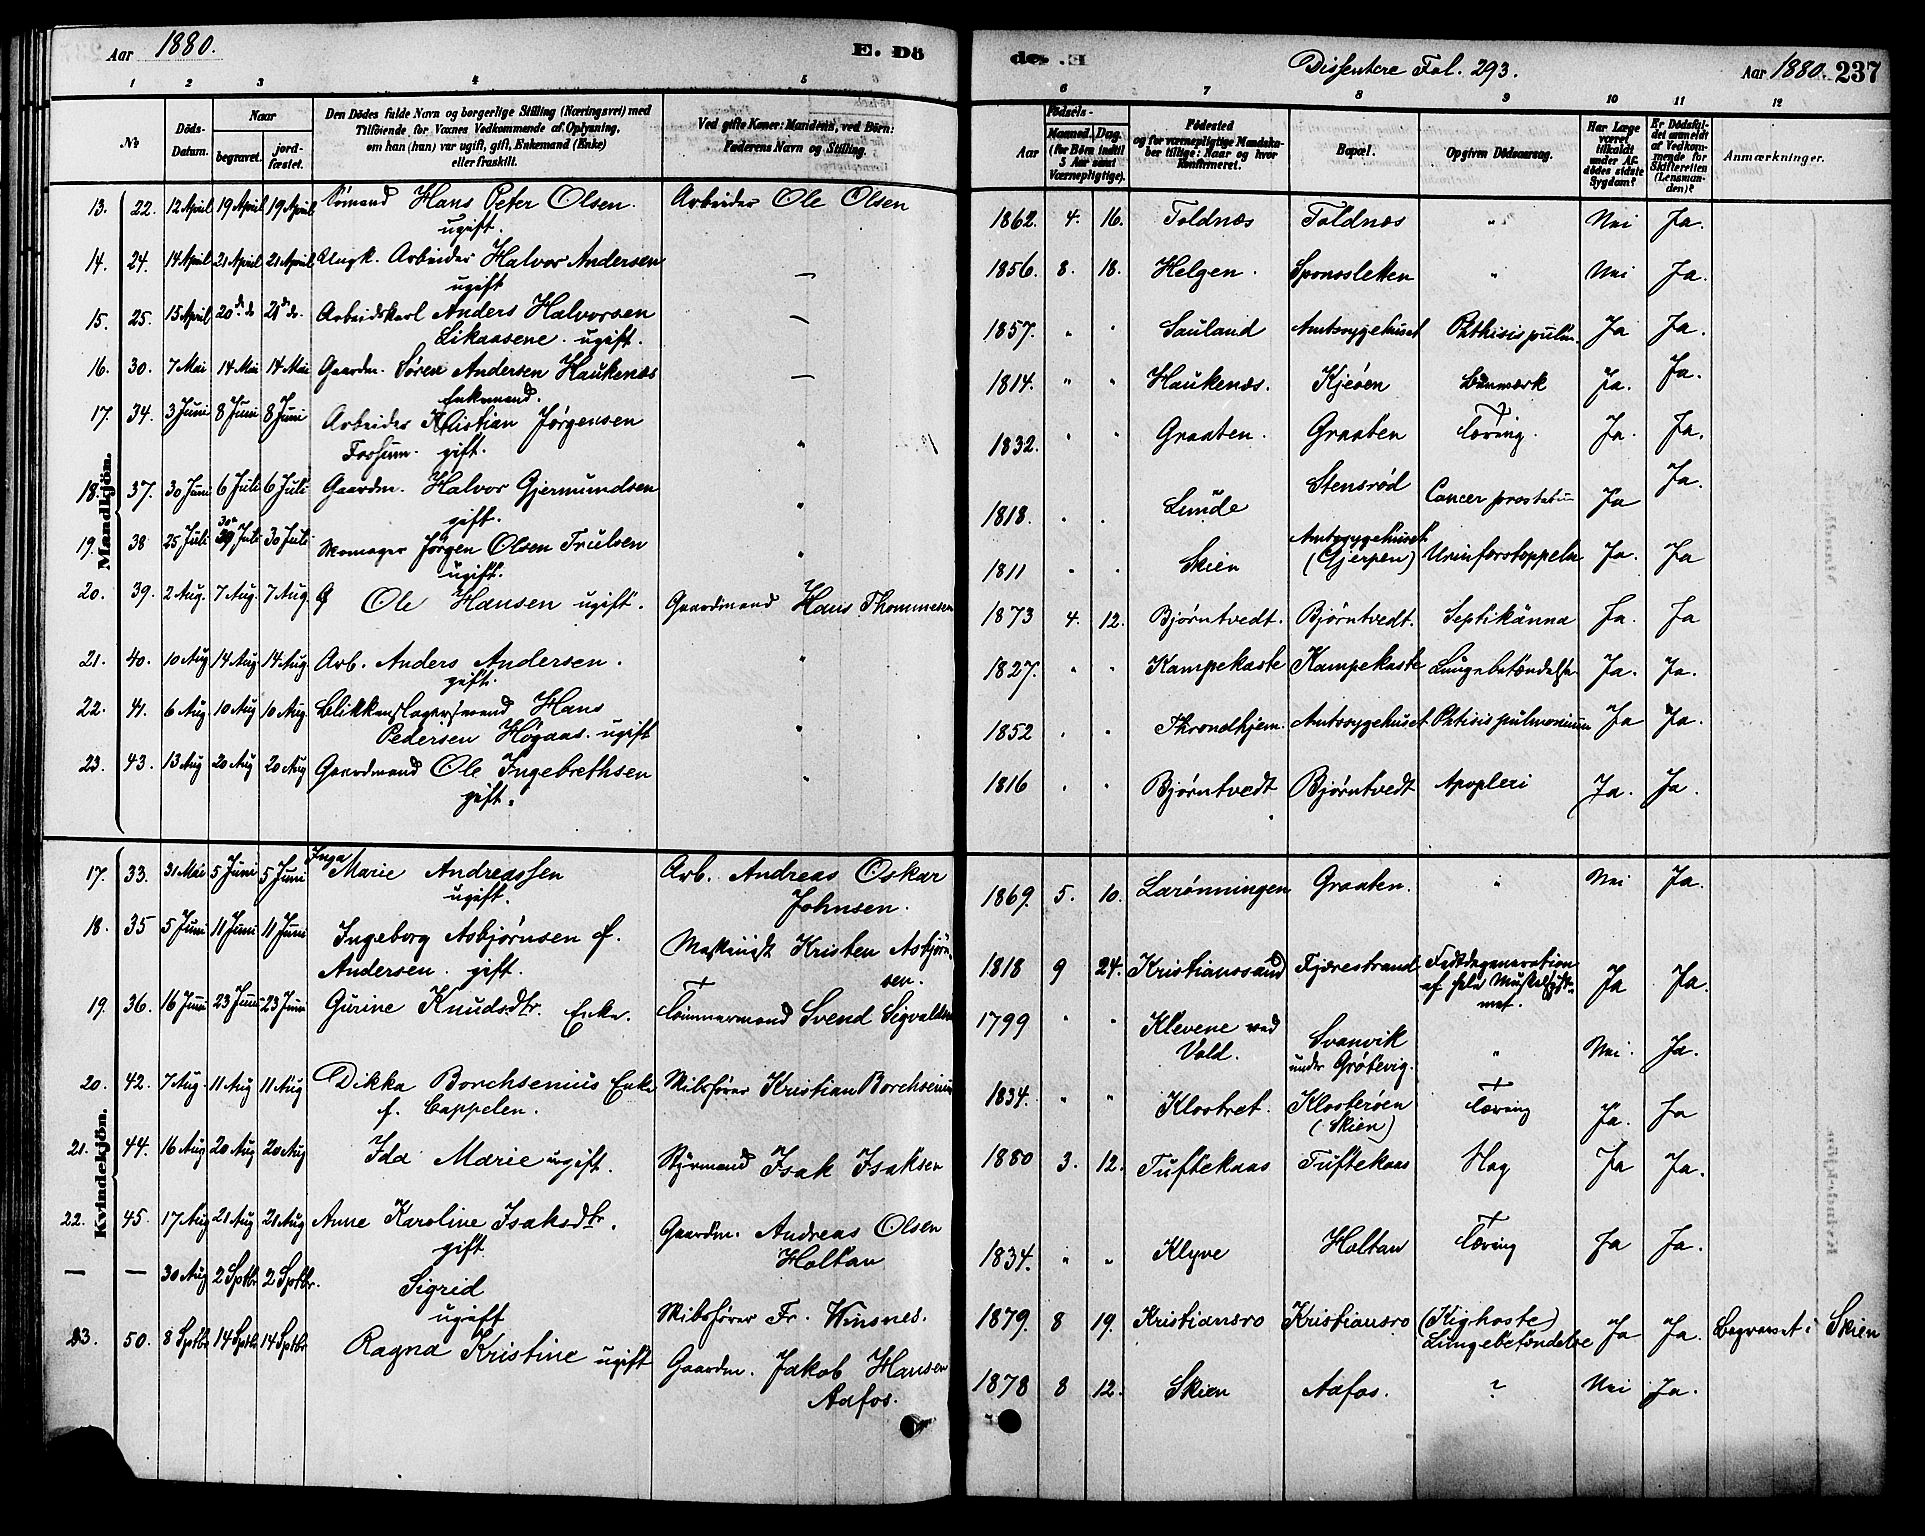 Aar 1880. E. Dö
des. E. Dissentere Fol. 293. Aar 1880. 237
1 2 3 4 5
6 7 8 9 10 11 12
№ Döds-Datum. Naar begravet. jordfæstet. Den Dödes fulde Navn og borgerlige Stilling (Næringsvei) med Tilföiende for Voxnes Vedkommende af Oplysning, om han (hun) var ugift, gift, Enkemand (Enke) eller fraskilt. Ved gifte Koner: Mandens, ved Börn: Faderens Navn og Stilling.
Födsels- Aar Maaned. Dag. (for Börn indtil 5 Aar samt Værnepligtige). Födested og for værnepligtige Mandskaber tillige: Naar og hvor konfirmeret. Bopæl. Opgiven Dödsaarsag. Har Læge været tilkaldt under Afdödes sidste Sygdom? Er Dödsfaldet anmeldt af Vedkommende for Skifteretten (Lensmanden)? Anmærkninger.
Mandkjön.
13. 22. 12 April 19 April 19 April Sømand Hans Peter Olsen. ugift. Arbeider Ole Olsen 1862. 4. 16. Toldnæs Toldnæs " Nei Ja.
14. 24. 14 April 21 April 21 April Ungk. Arbeider Halvor Andersen ugift — 1856. 8. 18. Helgen. Sponsletten " Nei Ja.
15. 25. 15 April 20 de do 20 de do. Arbeidskarl Anders Halvorsen Likaasene. ugift. — 1857. " " Sauland Amtssygehuset Phthisis pulm. Ja Ja.
16. 30. 7 Mai 14 Mai 14 Mai Gaardm. Søren Andersen Haukenæs Enkemand. — 1814. " " Haukenæs. Kjeøen Ja. Ja.
17. 34. 3 Juni 8 Juni 8 Juni Arbeider Kristian Jørgensen Fossum. gift. " 1832. " " Graaten. Graaten Tæring. Ja. Ja.
18. 37. 30 Juni 6 Juli 6 Juli Gaardm. Halvor Gjermundsen gift. " 1818. " " Lunde Stensrød Cancer prostatæ Ja Ja.
19. 38 25 Juli 30 Juli 30 Juli Skomager Jørgen Olsen Trulsen ugift. " 1811 " " Skien Amtssygehuset (Gjerpen) Urinforstoppelse Ja. Ja
20. 39. 2 Aug. 7 Aug. 7 Aug. Ole Hansen ugift. Gaardmand Hans Thommesen 1873 4. 12. Bjørntvedt. Bjørntvedt. Septikämia Ja. Ja
21. 40. 10 Aug 14 Aug 14 Aug Arb. Anders Andersen. gift. " 1827. " " Kampekaste Kampekaste Lungebetændelse Ja. Ja.
22. 41. 6 Aug 10 Aug 10 Aug. Blikkenslagersvend Hans Pedersen Høgaas. ugift " 1852 " " Throndhjem. Amtssygehuset Phtisis pulmonium Ja Ja.
23. 43. 13 Aug 20 Aug 20 Aug Gaardmand Ole Ingebrethsen gift. " 1816 " " Bjørntvedt Bjørntvedt Apoplexi Ja. Ja.
Kvindekjön.
17. 33. 31 Mai 5 Juni 5 Juni Inga Marie Andreassen ugift. Arb. Andreas Oskar Johnsen. 1869. 5. 10. Larønningen Graaten. " Nei Ja.
18. 35 5 Juni 11 Juni 11 Juni Ingeborg Asbjørnsen f. Andersen. gift. Maskinist Kristen Asbjørnsen. 1818 9 24. Kristianssand Fjærestrand Fedtdegeneration af hele Muskelsystemet. Ja Ja.
19. 36. 16 Juni 23 Juni 23 Juni Gurine Knudsdtr. Enke. Tømmermand Svend Sigvaldsen 1799 " " Klevene ved Vold. Svanvik under Grøtevig. " Nei. Ja.
20. 42. 7 Aug. 11 Aug 11 Aug Dikka Borchsenius Enke f. Cappelen. Skibsfører Kristian Borchsenius 1834. " " Klostret. Klosterøen (Skien) Tæring Ja. Ja
21. 44. 16 Aug 20 Aug 20 Aug Ida Marie ugift. Styrmand Isak Isaksen 1880 3. 12. Tuftekaas Tuftekaas Ja Ja.
22. 45. 17 Aug 21 Aug 21 Aug Anne Karoline Isaksdtr. gift. Gaardm. Andreas Olsen Holtan 1834. " " Klyve Holtan Tæring Ja Ja.
— — 30 Aug 2 Sptbr 2 Sptbr. Sigrid ugift Skibsfører Fr. Winsnes. 1879. 8 19. Kristiansro Kristiansro (Kighoste) Lungebetændelse Ja Ja. Begravet i Skien
23. 50. 8 Sptbr 14 Sptbr 14 Sptbr Ragna Kristine ugift Gaardm. Jakob Hansen Aafos. 1878 8 12. Skien Aafos. ? Nei Ja.